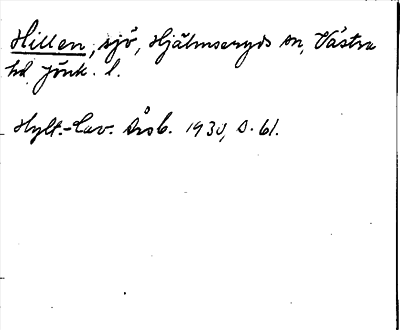 Hillen, sjö, Hjälmseryds sn, Västra
hd Jönk. l.
Hylt.-Cav. Årsb. 1930, s. 61.